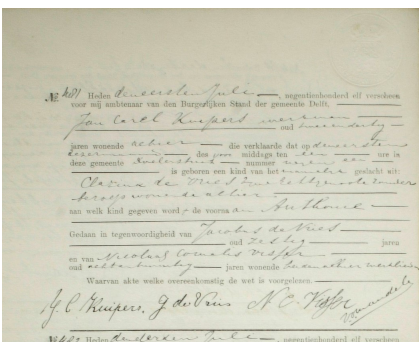 № 481 Heden den eersten Juli, negentienhonderd elf verscheen
voor mij ambtenaar van den Burgerlijken Stand der gemeente Delft,
Jan Carel Kuipers
oud
jaren wonende alhier die verklaarde dat op den eersten
dezer des voor middags ten ure in
deze gemeente nummer
is geboren een kind van het geslacht uit:
Clasina de Vries zijne echtgenoote zonder
beroep wonende alhier
aan welk kind gegeven word de voorna
Gedaan in tegenwoordigheid van Jacobus de Vries
oud zestig jaren
en van Nicolaas Cornelis Visser
oud jaren wonende beiden alhier
Waarvan akte welke overeenkomstig de wet is voorgelezen.
J. C. Kuipers. J de Vries N. C. Visser
Heden den derden Juli, negentienhonderd elf verscheen